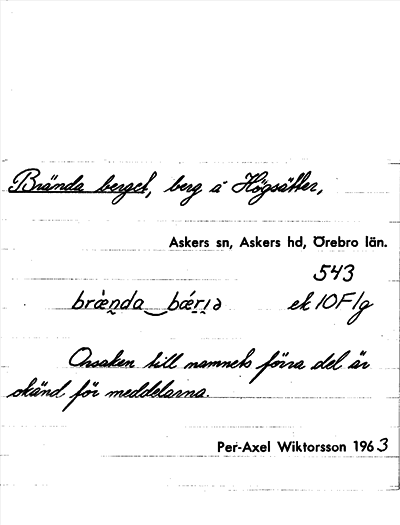 Brända berget, berg å Högsätter,
Askers sn, Askers hd, Örebro län.
543
bræ̀n̯da‿bǽr̯ı̯ə ek 10F1g
Orsaken till namnets förra del är
okänd för meddelarna.
Per-Axel Wiktorsson 1963